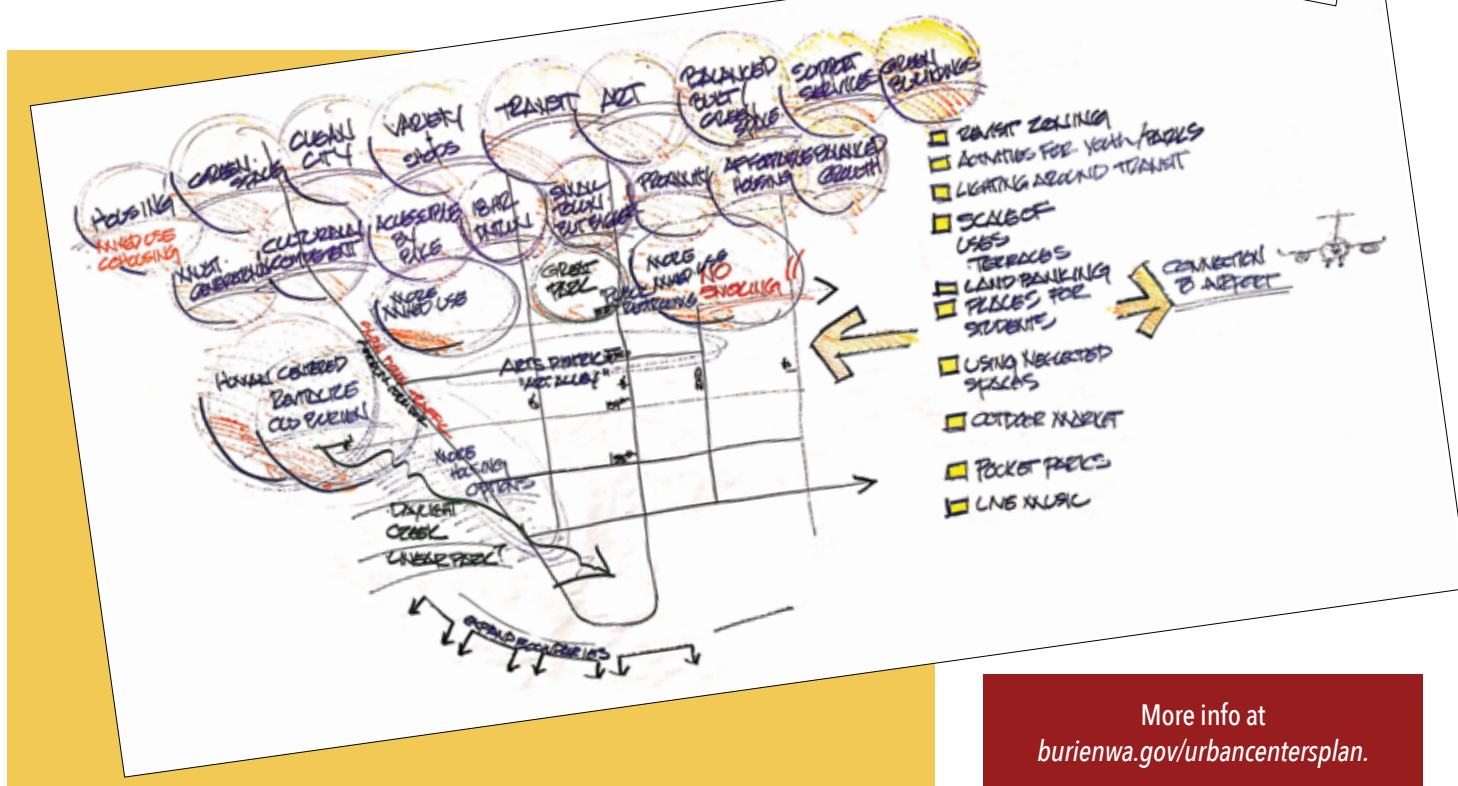 HOUSING
MIXED USE
COHOUSING
GREEN
SPACE
CLEAN
CITY
VARIETY
+
SHOPS
TRANSIT
ART
BALANCED
BUILT/
GREEN
SPACE
SUPPORT
SERVICES
GREEN
BUILDINGS
MULTI
GENERATIONAL
CULTURALLY
COMPETENT
ACCESSIBLE
BY
BIKE
18 HR
SMALL
TOWN
BUT BIGGER
PROXIMITY
AFFORDABLE
HOUSING
BALANCED
GROWTH
MORE
MIXED USE
GREAT
PARK
PUBLIC
RESTROOMS
MORE
MIXED USE
NO
SMOKING !!
HUMAN CENTERED
REVITALIZE
OLD BURIEN
SLOW DOWN TRAFFIC
ARTS DISTRICT
"ART ALLEY"
MORE
HOUSING
OPTIONS
DAYLIGHT
CREEK
LINEAR PARK?
EXPAND BOUNDARIES
REVISIT ZONING
ACTIVITIES FOR YOUTH/PARKS
LIGHTING AROUND TRANSIT
SCALE OF
USES
TERRACES
LAND BANKING
PLACES FOR
STUDENTS
USING NEGLECTED
SPACES
OUTDOOR MARKET
POCKET PARKS
LIVE MUSIC
CONNECTION
TO AIRPORT
More info at
burienwa.gov/urbancentersplan.